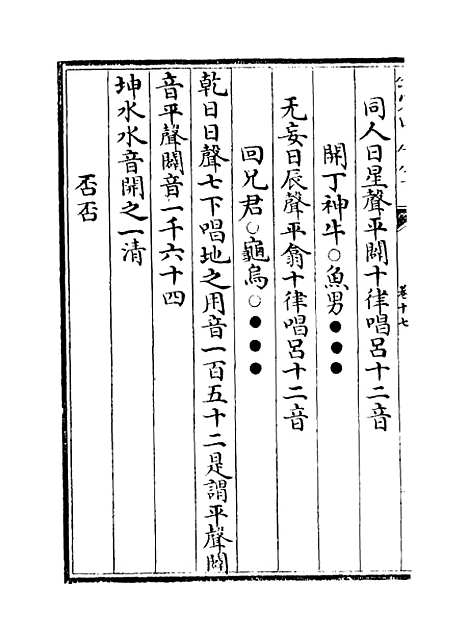 卷十七
同人日星聲平闢十律唱呂十二音
開丁神牛○魚男●●●
无妄日辰聲平翕十律唱呂十二音
回兄君○龜烏○●●●
乾日日聲七下唱地之用音一百五十二是謂平聲闢
音平聲闢音一千六十四
坤水水音開之一清
否否